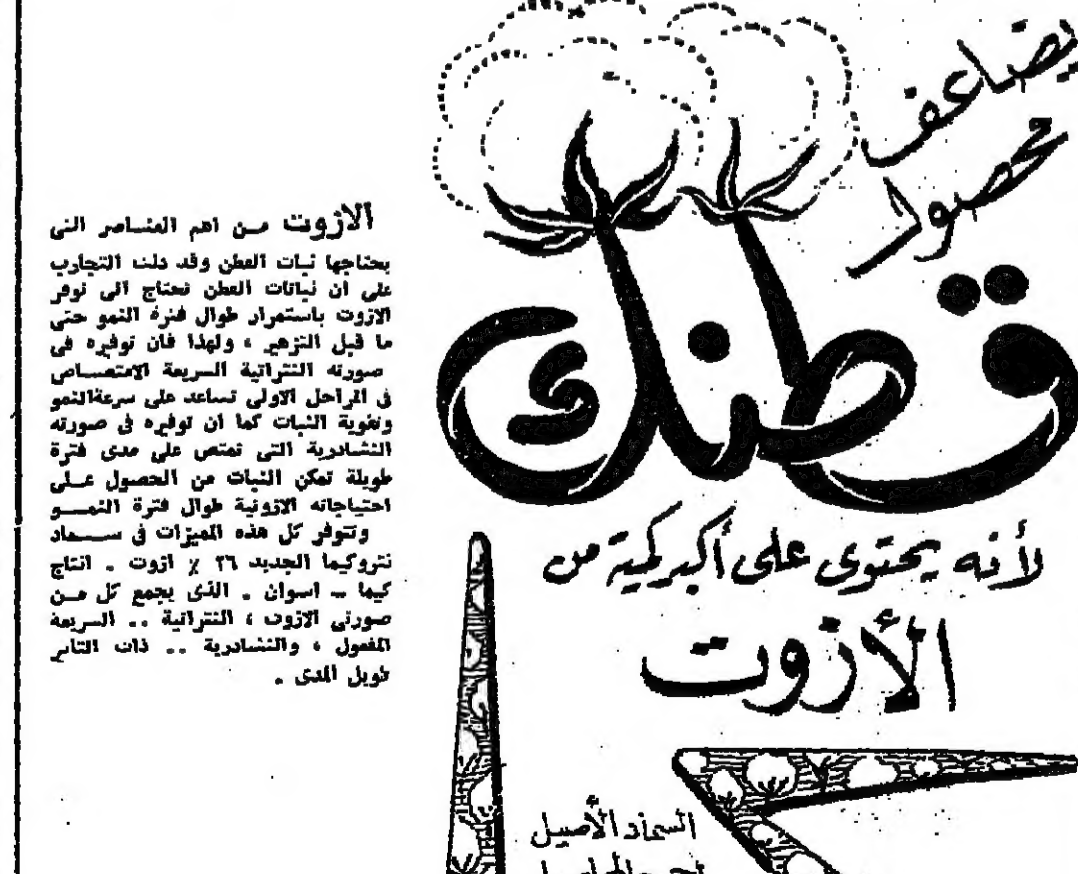 يضاعف
محصول
قطنك
لأنه يحتوى على أكبر كمية من
الأزوت
السماد الأصيل
الازوت مـن اهم العنـاصر التى
يحتاجها نبات القطن وقد دلت التجارب
على ان نباتات القطن تحتاج الى توفر
الازوت باستمرار طوال فترة النمو حتى
ما قبل التزهير ، ولهذا فان توفيره فى
صورته النتراتية السريعة الامتصـاص
فى المراحل الاولى تساعد على سرعةالنمو
وتقوية النبات كما ان توفيره فى صورته
النشادرية التى تمتص على مدى فترة
طويلة تمكن النبات من الحصول عـلى
احتياجاته الازوتية طوال فترة النمـو
وتتوفر كل هذه الميزات فى سـماد
نتروكيما الجديد ٢٦ ٪ ازوت . انتاج
كيما ــ اسوان . الذى يجمع كل مـن
صورتى الازوت ، النتراتية .. السريعة
المفعول ، والنشادرية .. ذات التاثير
طويل المدى .